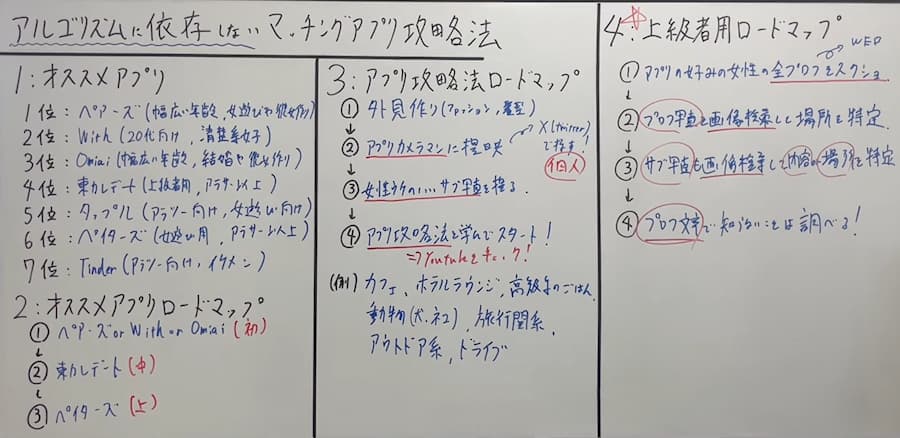 アルゴリズムに依存しないマッチングアプリ攻略法
1:オススメアプリ
1位:ペアーズ(幅広い年齢、女遊びや彼女作り)
2位:With(20代向け、清楚系女子)
3位:Omiai(幅広い年齢、結婚や彼女作り)
4位:東カレデート(上級者用、アラサー以上)
5位:タップル(アラツー向け、女遊び向け)
6位:ペイターズ(女遊び用、アラサー以上)
7位:Tinder(アラツー向け、イケメン)
2:オススメアプリロードマップ
① ペアーズor With or Omiai(初)
↓
② 東カレデート(中)
↓
③ ペイターズ(上)
3:アプリ攻略法ロードマップ
① 外見作り(ファッション、髪型)
↓
② アプリカメラマンに撮影
X(twitter)
で探す!
個人
↓
③ 女性ウケのいいサブ写真を撮る
↓
④ アプリ攻略法を学んでスタート!
⇒Youtubeをチェック!
(例) カフェ、ホテルラウンジ、高級系のごはん、
動物(犬、ネコ)、旅行関系、
アウトドア系、ドライブ
4:上級者用ロードマップ
WEB
① アプリの好みの女性の全プロフをスクショ
↓
② プロフ写真を画像検索して場所を特定
↓
③ サブ写真も画像検索して内容や場所を特定
↓
④ プロフ文章で知らないことは調べる!